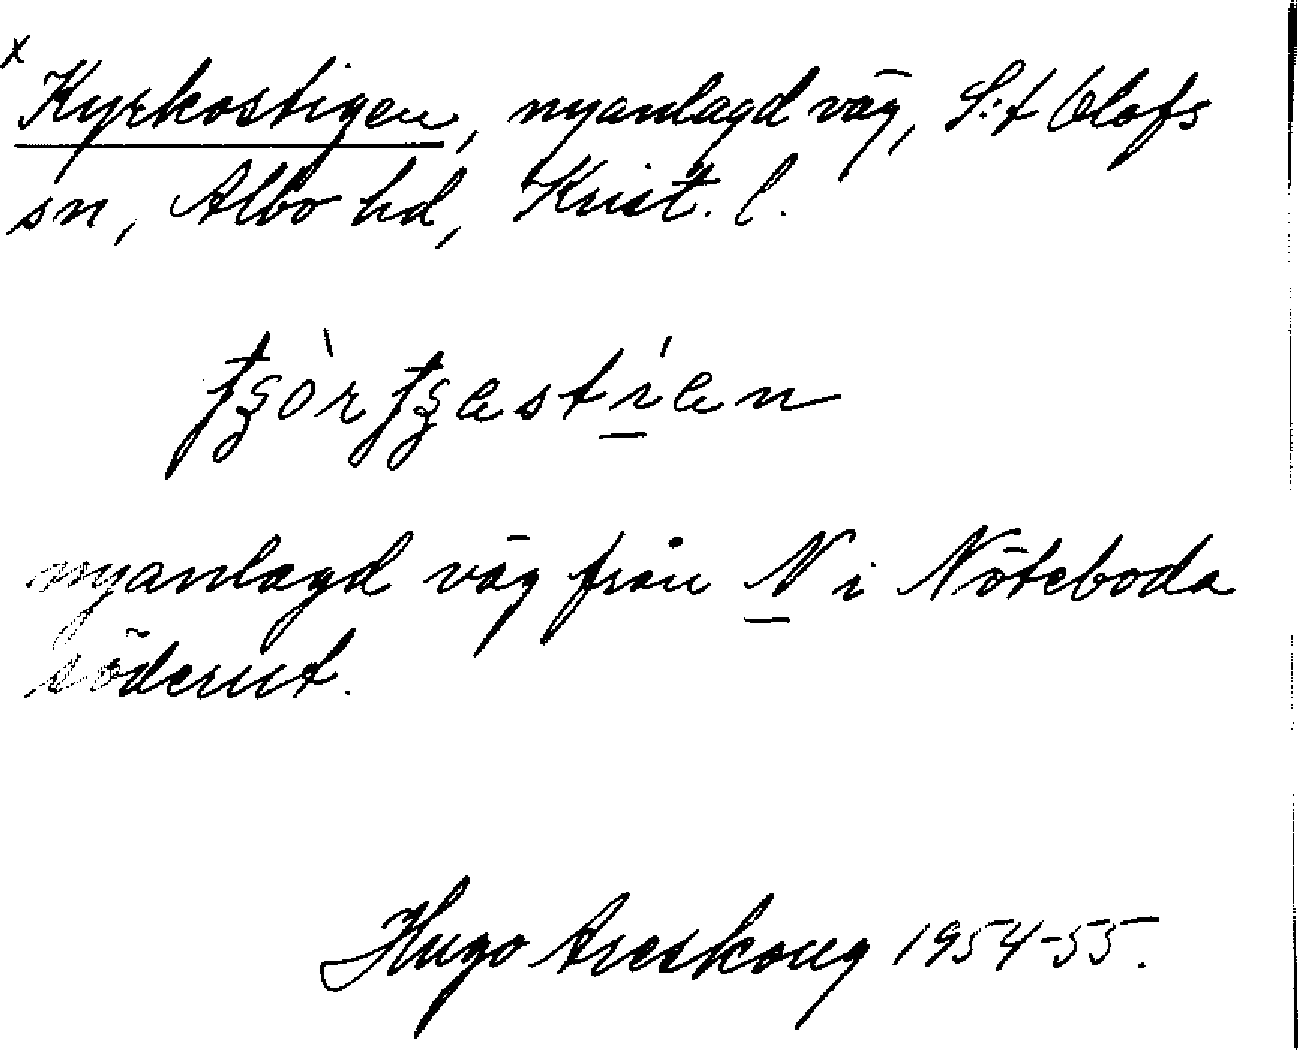 x
Kyrkostigen, nyanlagd väg, S:t Olofs
sn, Albo hd, Krist. l.
nyanlagd väg från N i Nöteboda
söderut.
Hugo Areskoug 1954-55.